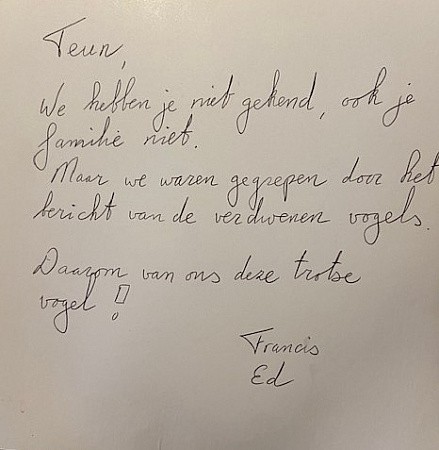 Teun,
We hebben je niet gekend, ook je
familie niet.
Maar we waren gegrepen door het
bericht van de verdwenen vogels.
Daarom van ons deze trotse
vogel!
Francis
Ed